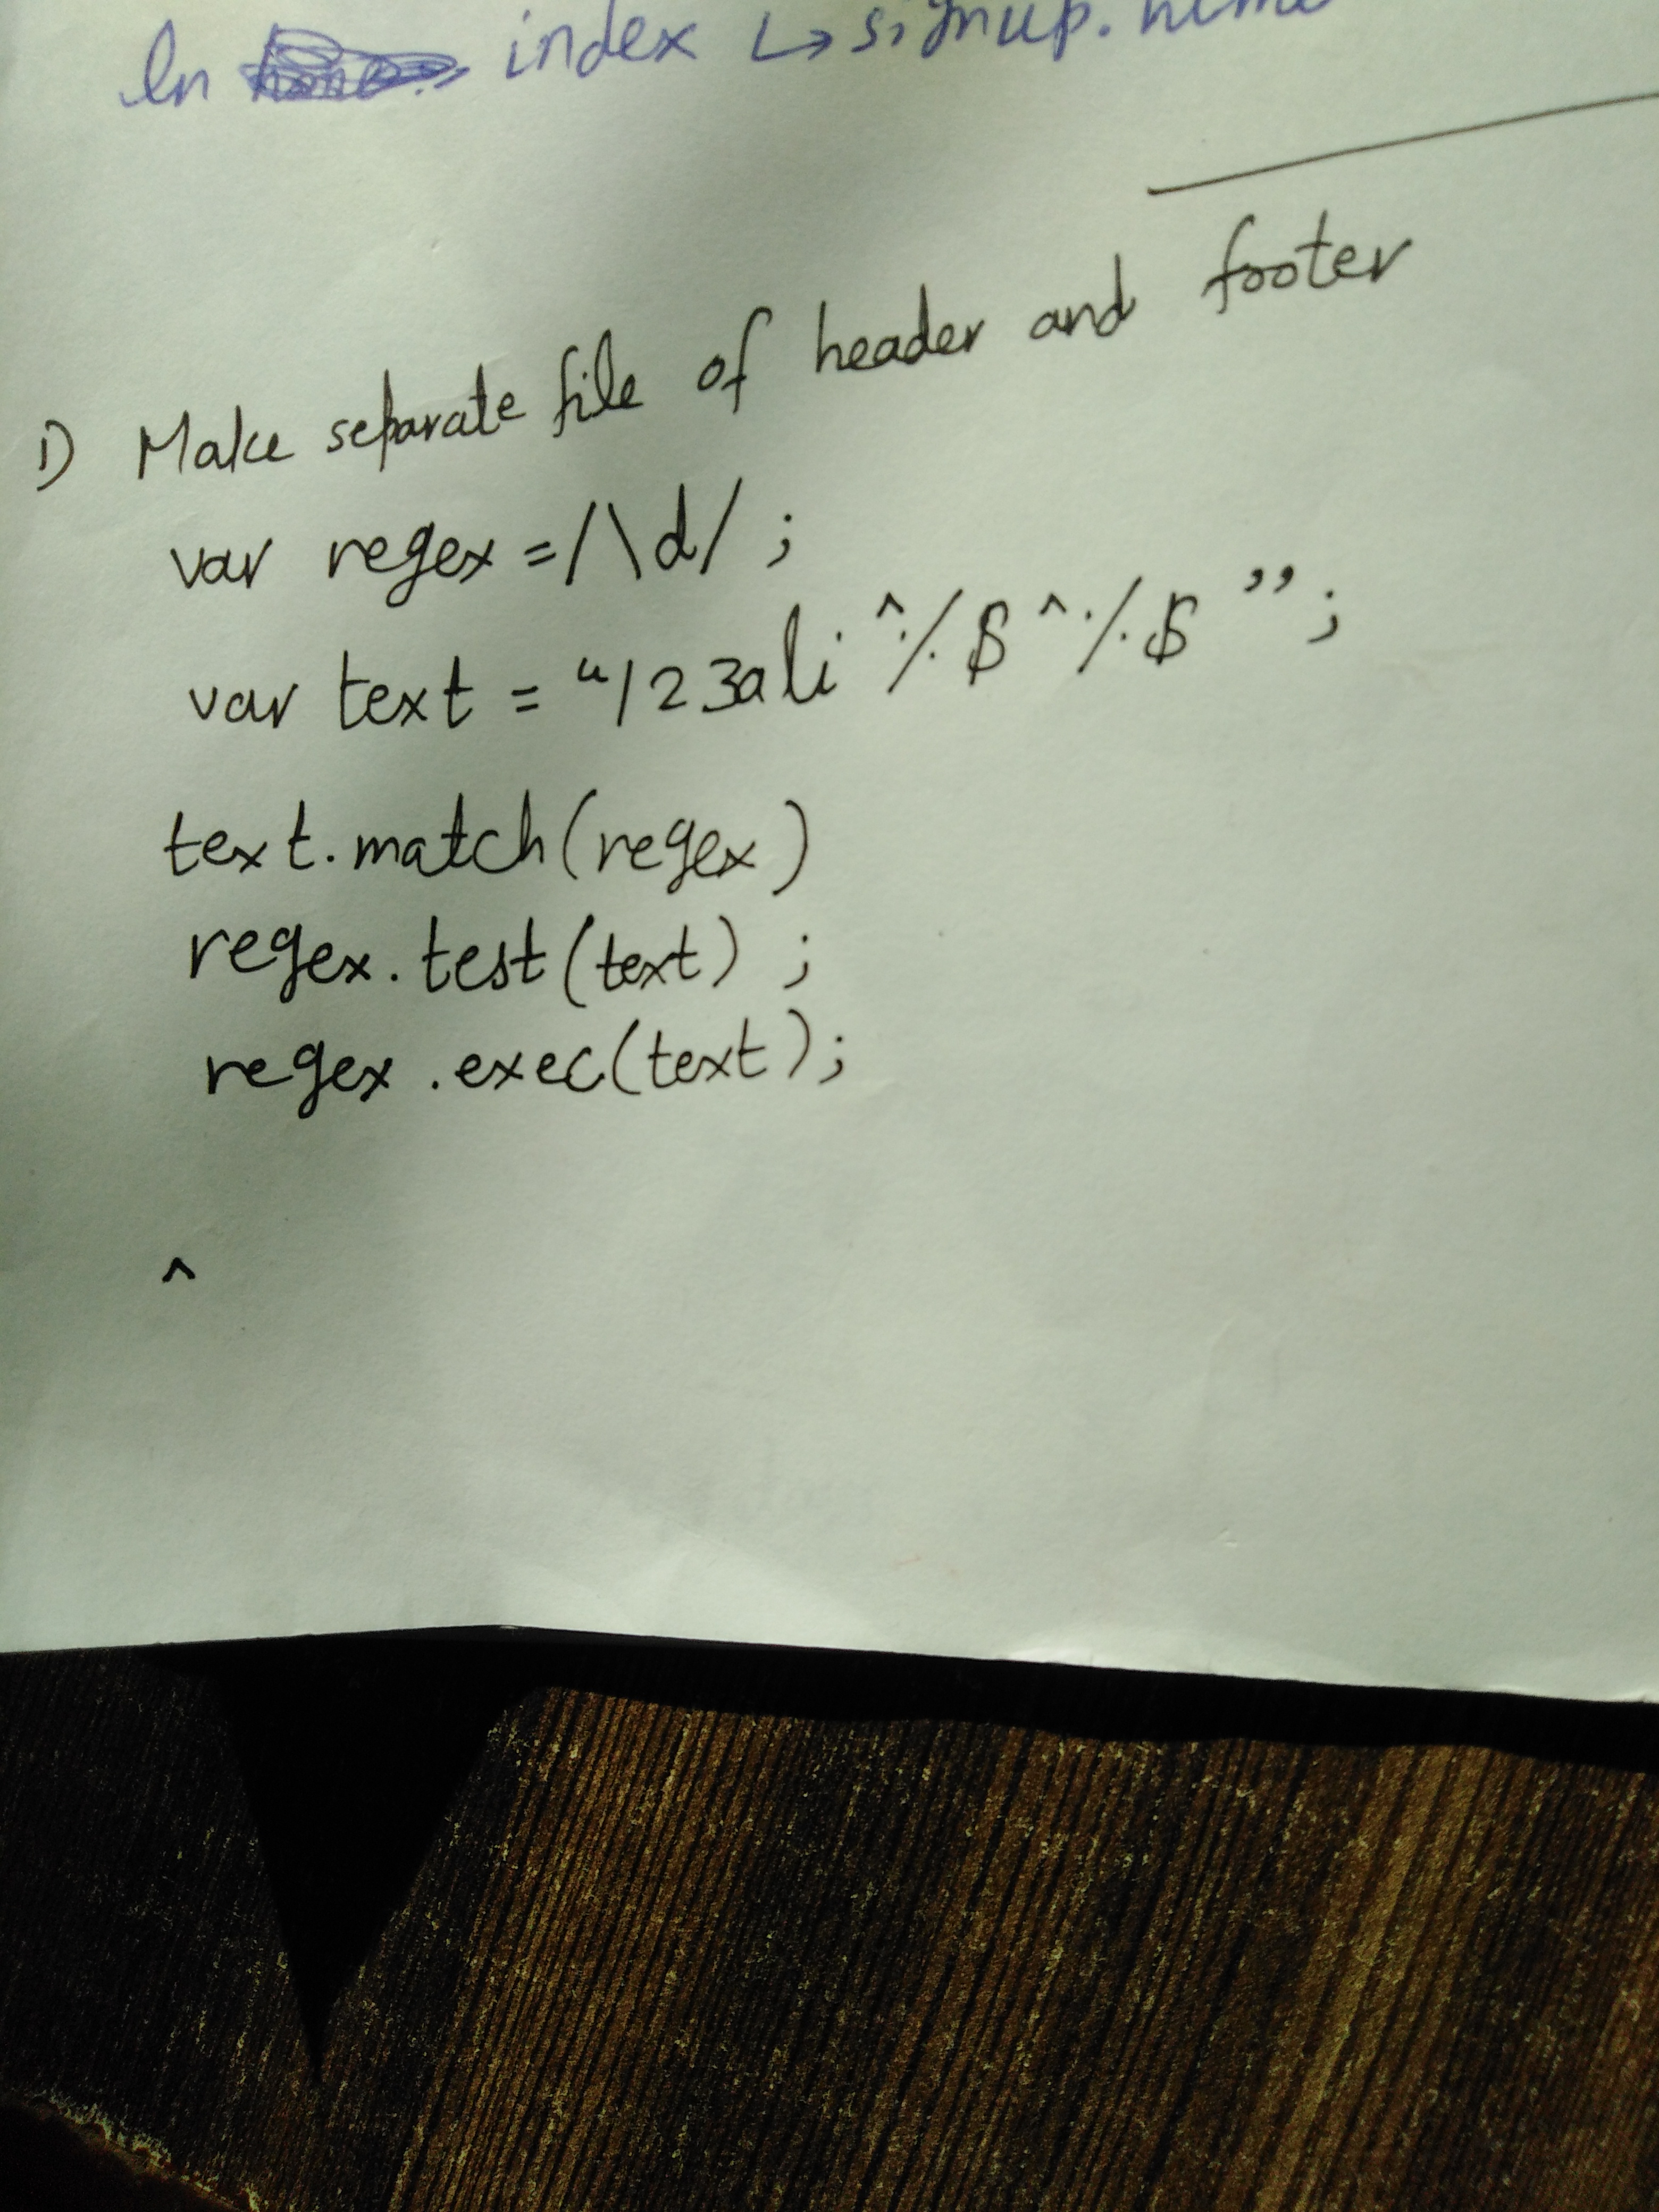 In index ↳ signup.html
1) Make separate file of header and footer
var regex =/\d/ ;
var text = “123ali^%$^%$”;
text.match(regex)
regex.test(text) ;
regex.exec(text);
^